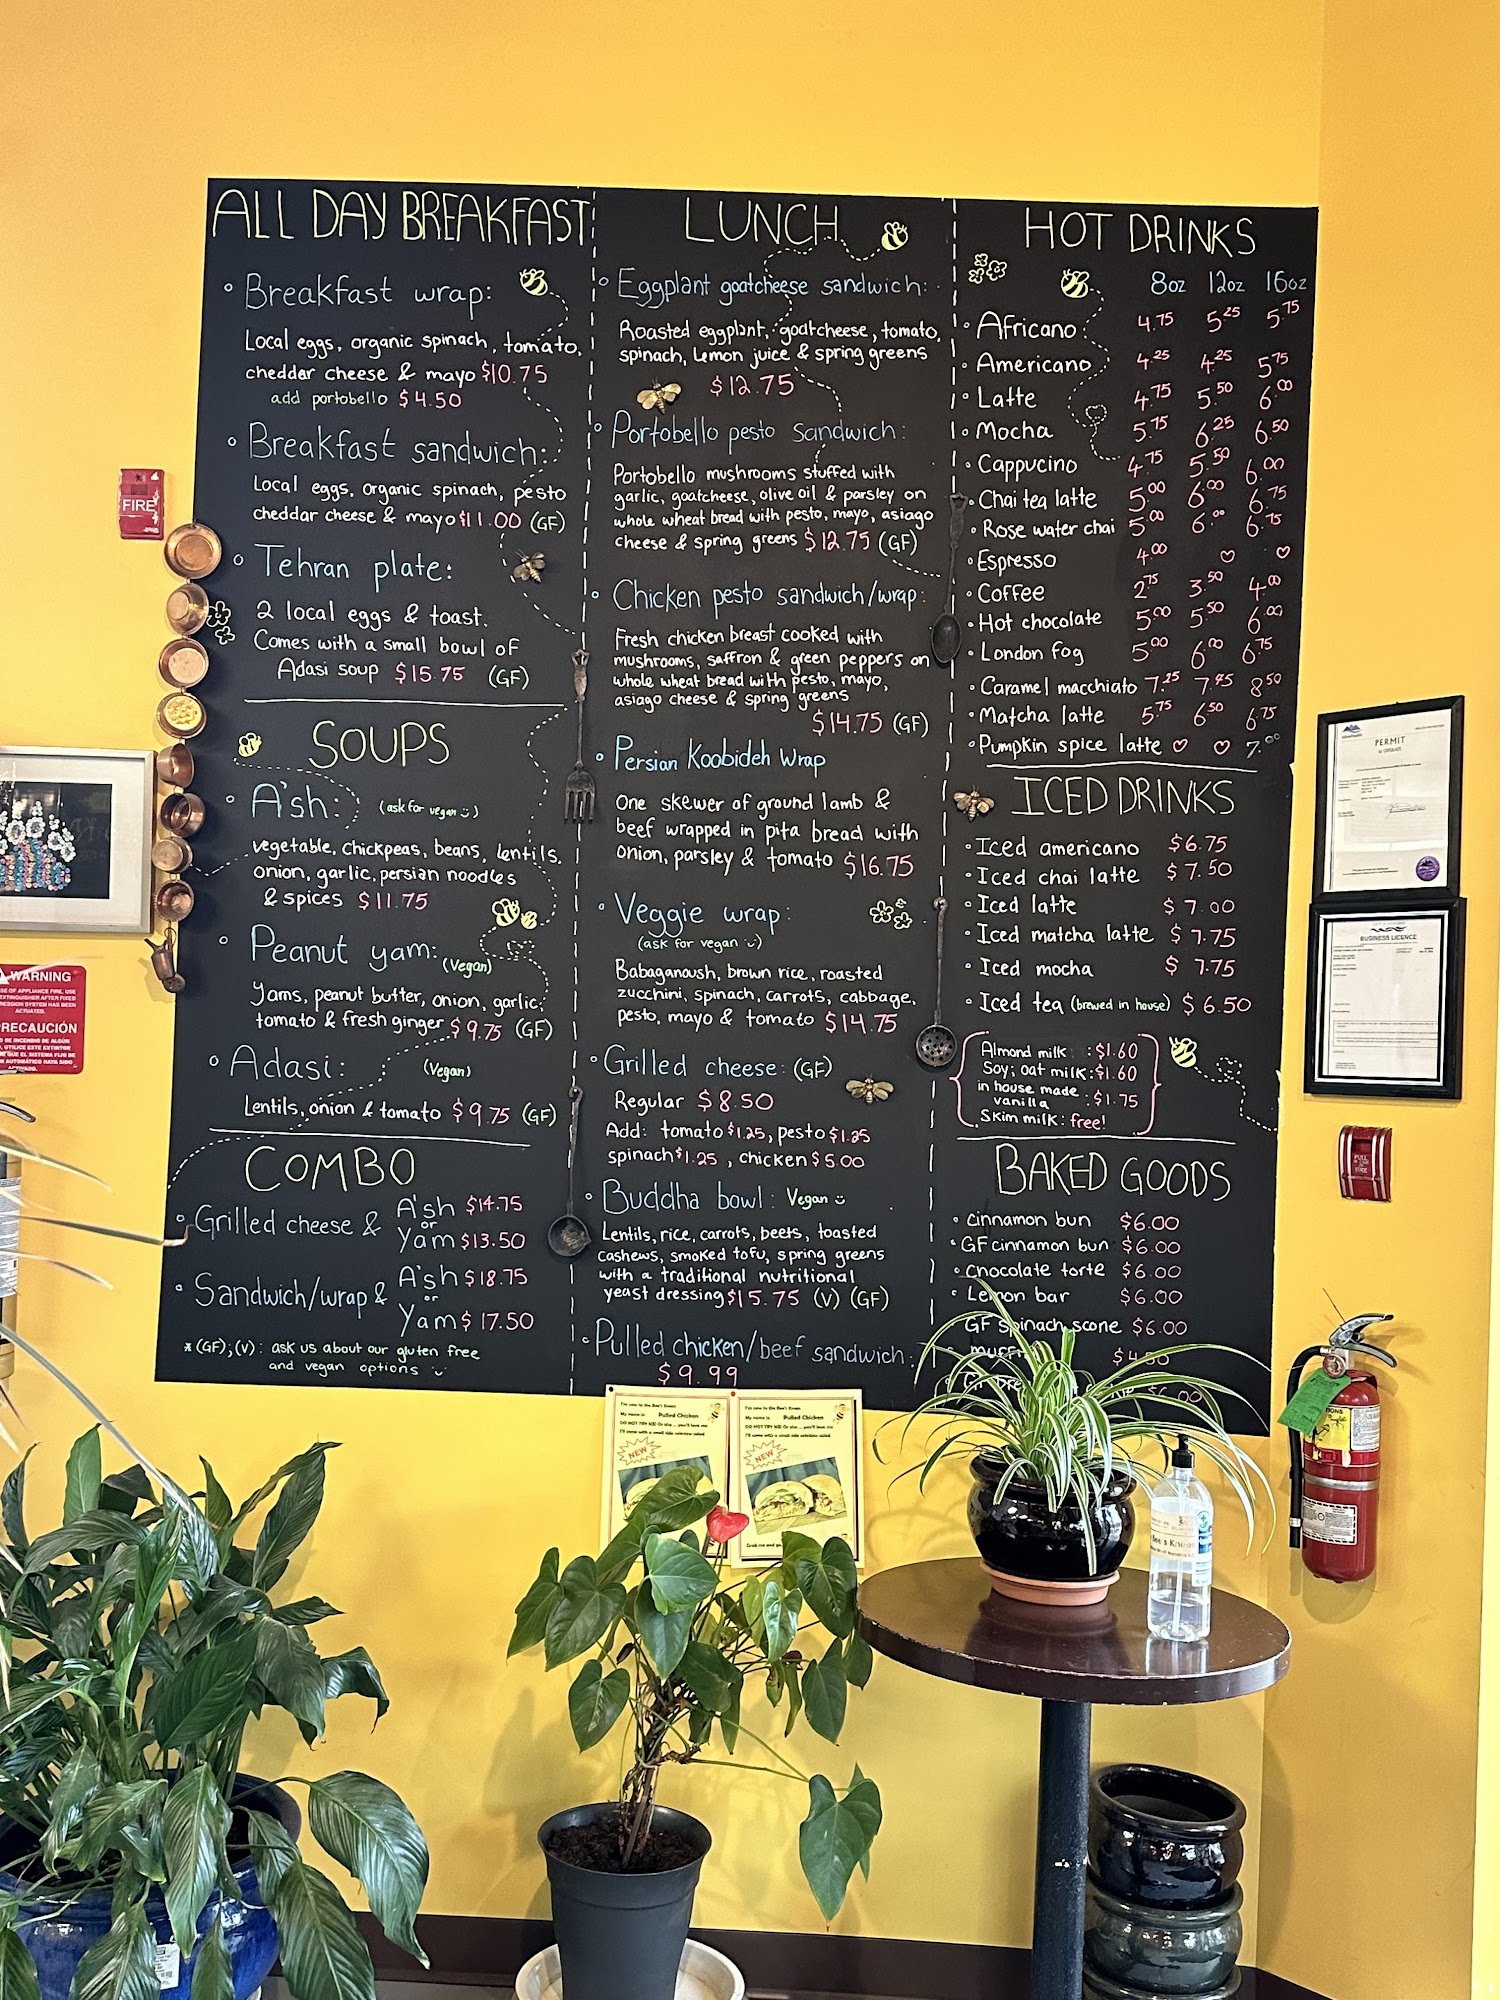 ALL DAY BREAKFAST
Breakfast wrap:
Local eggs, organic spinach, tomato,
cheddar cheese & mayo $10.75
add portobello $4.50
Breakfast sandwich:
Local eggs, organic spinach, pesto
cheddar cheese & mayo $11.00 (GF)
Tehran plate:
2 local eggs & toast.
Comes with a small bowl of
Adasi soup $15.75 (GF)
SOUPS
A'sh: (ask for vegan :))
vegetable, chickpeas, beans, lentils,
onion, garlic, persian noodles
& spices $11.75
Peanut yam: (Vegan)
Yams, peanut butter, onion, garlic,
tomato & fresh ginger $9.75 (GF)
Adasi: (Vegan)
Lentils, onion & tomato $9.75 (GF)
COMBO
Grilled cheese & A'sh $14.75
or
Yam $13.50
Sandwich/wrap & A'sh $18.75
or
Yam $17.50
*(GF);(V): ask us about our gluten free
and vegan options
LUNCH
Eggplant goatcheese sandwich:
Roasted eggplant, goatcheese, tomato,
spinach, lemon juice & spring greens
$12.75
Portobello pesto sandwich:
Portobello mushrooms stuffed with
garlic, goatcheese, olive oil & parsley on
whole wheat bread with pesto, mayo, asiago
cheese & spring greens $12.75 (GF)
Chicken pesto sandwich/wrap:
Fresh chicken breast cooked with
mushrooms, saffron & green peppers on
whole wheat bread with pesto, mayo,
asiago cheese & spring greens
$14.75 (GF)
Persian Koobideh Wrap
One skewer of ground lamb &
beef wrapped in pita bread with
onion, parsley & tomato $16.75
Veggie wrap:
(ask for vegan :))
Babaganoush, brown rice, roasted
zucchini, spinach, carrots, cabbage,
pesto, mayo & tomato $14.75
Grilled cheese: (GF)
Regular $8.50
Add: tomato $1.25, pesto $1.25
spinach $1.25, chicken $5.00
Buddha bowl: Vegan :)
Lentils, rice, carrots, beets, toasted
cashews, smoked tofu, spring greens
with a traditional nutritional
yeast dressing $15.75 (V) (GF)
Pulled chicken/beef sandwich:
$9.99
HOT DRINKS
8oz 12oz 16oz
Africano 4.75 5.25 5.75
Americano 4.25 4.25 5.75
Latte 4.75 5.50 6.00
Mocha 5.75 6.25 6.50
Cappucino 4.75 5.50 6.00
Chai tea latte 5.00 6.00 6.75
Rose water chai 5.00 6.00 6.75
Espresso 4.00 ♡ ♡
Coffee 2.75 3.50 4.00
Hot chocolate 5.00 5.50 6.00
London fog 5.00 6.00 6.75
Caramel macchiato 7.25 7.95 8.50
Matcha latte 5.75 6.50 6.75
Pumpkin spice latte ♡ ♡ 7.00
ICED DRINKS
Iced americano $6.75
Iced chai latte $7.50
Iced latte $7.00
Iced matcha latte $7.75
Iced mocha $7.75
Iced tea (brewed in house) $6.50
Almond milk : $1.60
Soy; oat milk: $1.60
in house made
vanilla : $1.75
Skim milk: free!
BAKED GOODS
cinnamon bun $6.00
GF cinnamon bun $6.00
chocolate torte $6.00
Lemon bar $6.00
GF spinach scone $6.00
$4.50
FIRE
WARNING
PRECAUCIÓN
PERMIT
BUSINESS LICENCE
I'm new to the Bee's Knees
My name is Pulled Chicken
NEW
I'm new to the Bee's Knees
My name is Pulled Chicken
NEW